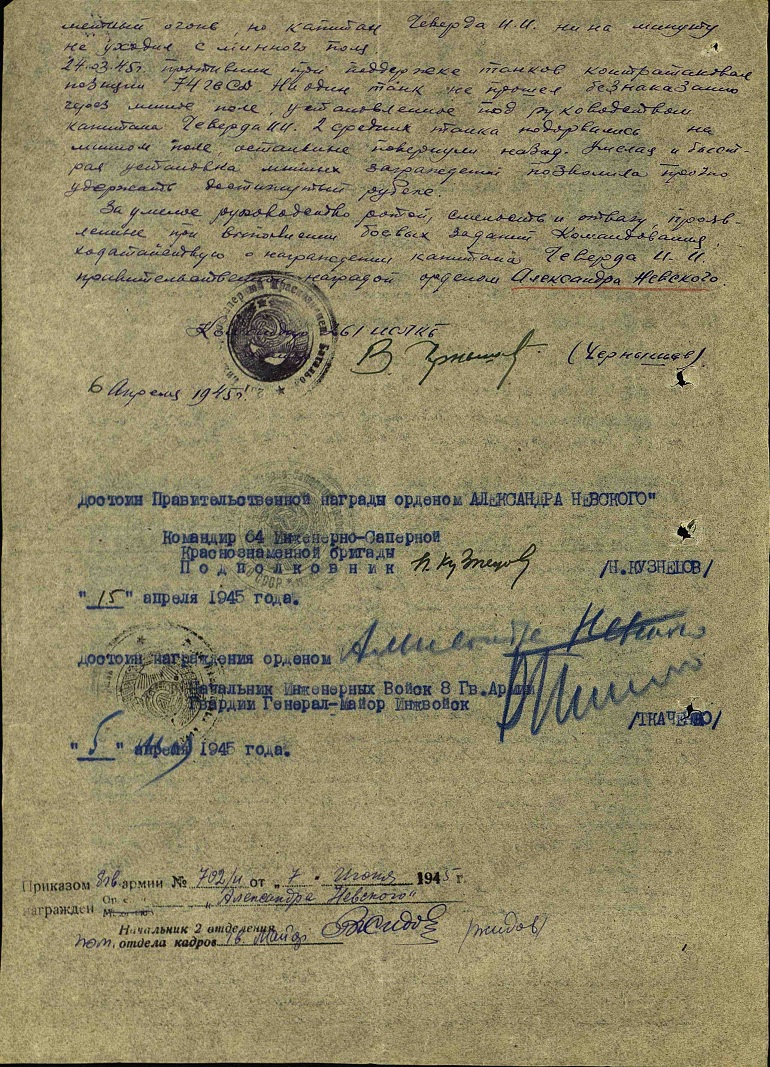 метный огонь, но капитан Чеверда И.И. ни на минуту
не уходил с минного поля.
24.03.45г. противник при поддержке танков контратаковал
позиции 74 ГвСД. Ни один танк не прошел безнаказанно
через минное поле, установленное под руководством
капитана Чеверда И.И. 2 средних танка подорвались на
минном поле, остальные повернули назад. Умелая и быст-
рая установка минных заграждений позволила прочно
удержать достигнутый рубеж.
За умелое руководство ротой, смелость и отвагу, прояв-
ленные при выполнении боевых заданий Командования,
ходатайствую о награждении капитана Чеверда И.И.
правительственной наградой орденом Александра Невского.
Командир 261
(Чернышов)
6 Апреля 1945г.
достоин Правительственной награды орденом АЛЕКСАНДРА НЕВСКОГО"
Командир 64 Инженерно-Саперной
Краснознаменной бригады
Подполковник Н. Кузнецов /Н.КУЗНЕЦОВ/
"15" апреля 1945 года.
достоин награждения орденом Александра Невского
Начальник Инженерных Войск 8 Гв.Армии
Гвардии Генерал-Майор Инжвойск
/ТКАЧЕНКО/
"5" апреля мая 1945 года.
Приказом 8 гв. армии № 702/н от "7" Июня 1945 г.
награжден "Александра Невского"
Начальник 2 отделения
пом. отдела кадров гв. Майор